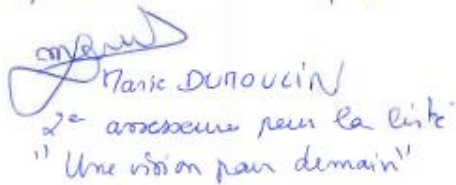 Marie DUMOULIN
2e assesseure pour la liste
"Une vision pour demain"